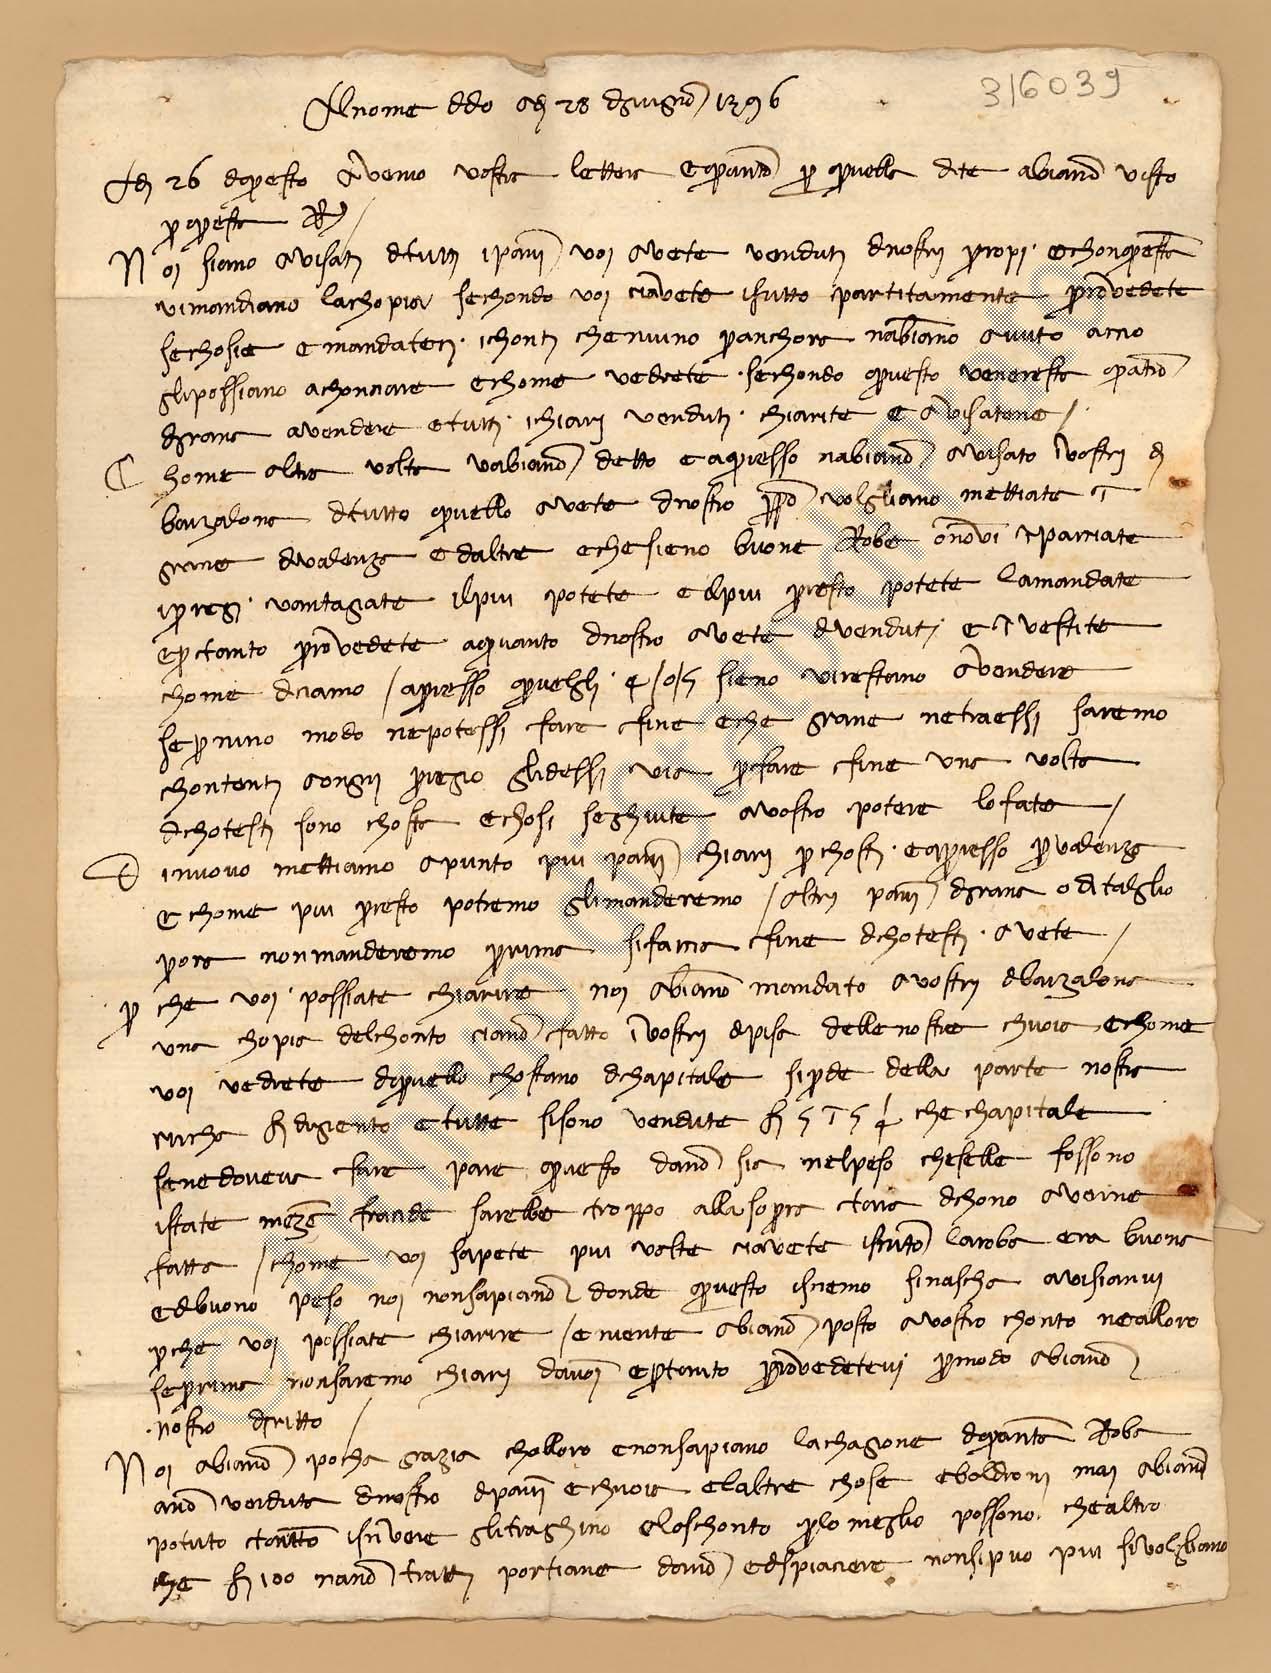 316039
Al nome d Dio A dì 28 d giugno 1396
A dì 26 d questo avemo vostra lettera e quanto per quella dite abiano visto
per questa R.
Noi siamo avisati d tutti i pani voi avete venduti d nostri propi e chon questa
vi mandiano la chopia sechondo voi ci avete iscritto partitamente provedete
se chosì è e mandateci i chonti che niuno per anchora n'abiamo avuto acciò
gli possiano achonciare e chome vedrete sechondo questo vene resta quatro
d grana a vendere e tutti i chiari venduti chiarite e avisatene
Chome altra volta v'abiano detto e apresso n'abiano avisato i vostri di
Barzalona d tutto quello avete d nostro propio volgliamo mettiate i
grane d Valenza ed altre e che sieno buone robe o non vi ispacciate
i pregi vantagate il più potete ed il più presto potete la mandate
e per tanto provedete a quanto d nostro avete d venduti e investite
chome diciamo apresso quelgli sieno vi restano a vendere
se per niuno modo ne potessi fare fine e che grane ne traessi saremo
chontenti a ongni pregio gli dessi via per fare fine una volta
d chotesti sono chostà e chosì seghuite a vostro potere lo fate
Di nuovo mettiamo a punto più pani chiari per chostì e apresso per Valenza
e chome più presto potremo gli manderemo altri pani d grana o di talglio
per ora non manderemo prima si faccia fine d chotesti avete
Perché voi possiate chiarire noi abiano mandato a vostri d Barzalona
una chopia del chonto ci ànno fatto i vostri d Pisa delle nostre chuoia e chome
voi vedrete d quello chostano d chapitale si perde della parte nostra
circha d'argiento e tutte si sono vendute che chapitale
se ne doveva fare pare questo danno sia nel peso che s'elle fossono
istate meze fracide sarebbe troppo alla sopra tara d chono averne
fatta chome voi sapete più volte ci avete iscritto la roba era buona
ed buono peso noi non sapiano donde questo iscemo si nascha avisianvi
perché voi possiate chiarire e niente abiano posto a vostro chonto né a lloro
se prima non saremo chiari da voi e per tanto provedetevi per modo abiano
nostro diritto
Noi abiano pocha grazia cho lloro e non sapiano la chagone d quanta roba
ànno venduta d nostro d pani e chuoia e l'altre chose e boldroni mai abiano
potuto tanto iscrivere gli traghino a loschonto per lo meglio possono che altro
che 100 n'ànno tratti portiane danno e dispiacere non si può più si volgliano